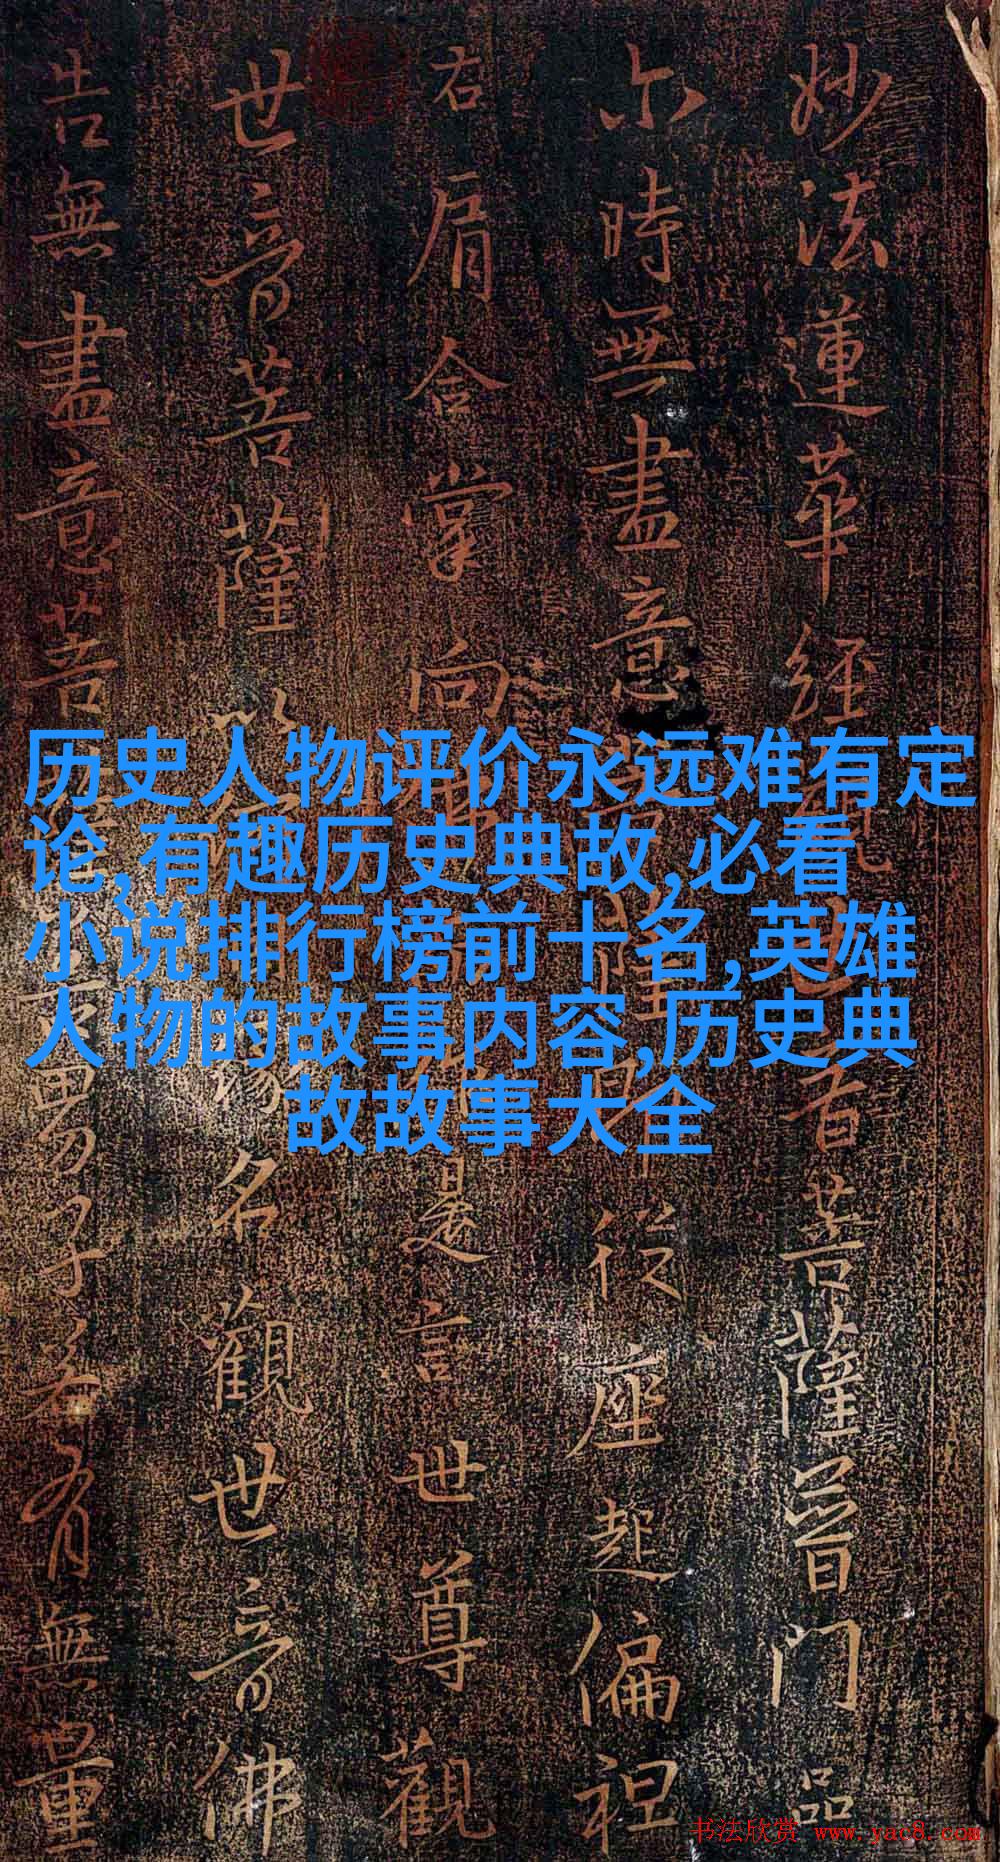 妙法蓮華經音菩薩普門品
尒時無盡意薩即從座起偏袒
右肩合掌向佛是言世尊觀
世音菩薩以名觀世音佛
告無盡意菩男子若有無量
历史人物评价永远难有定
论,有趣历史典故,必看
小说排行榜前十名,英雄
人物的故事内容,历史典
故故事大全
书法欣赏 www.yac8.com